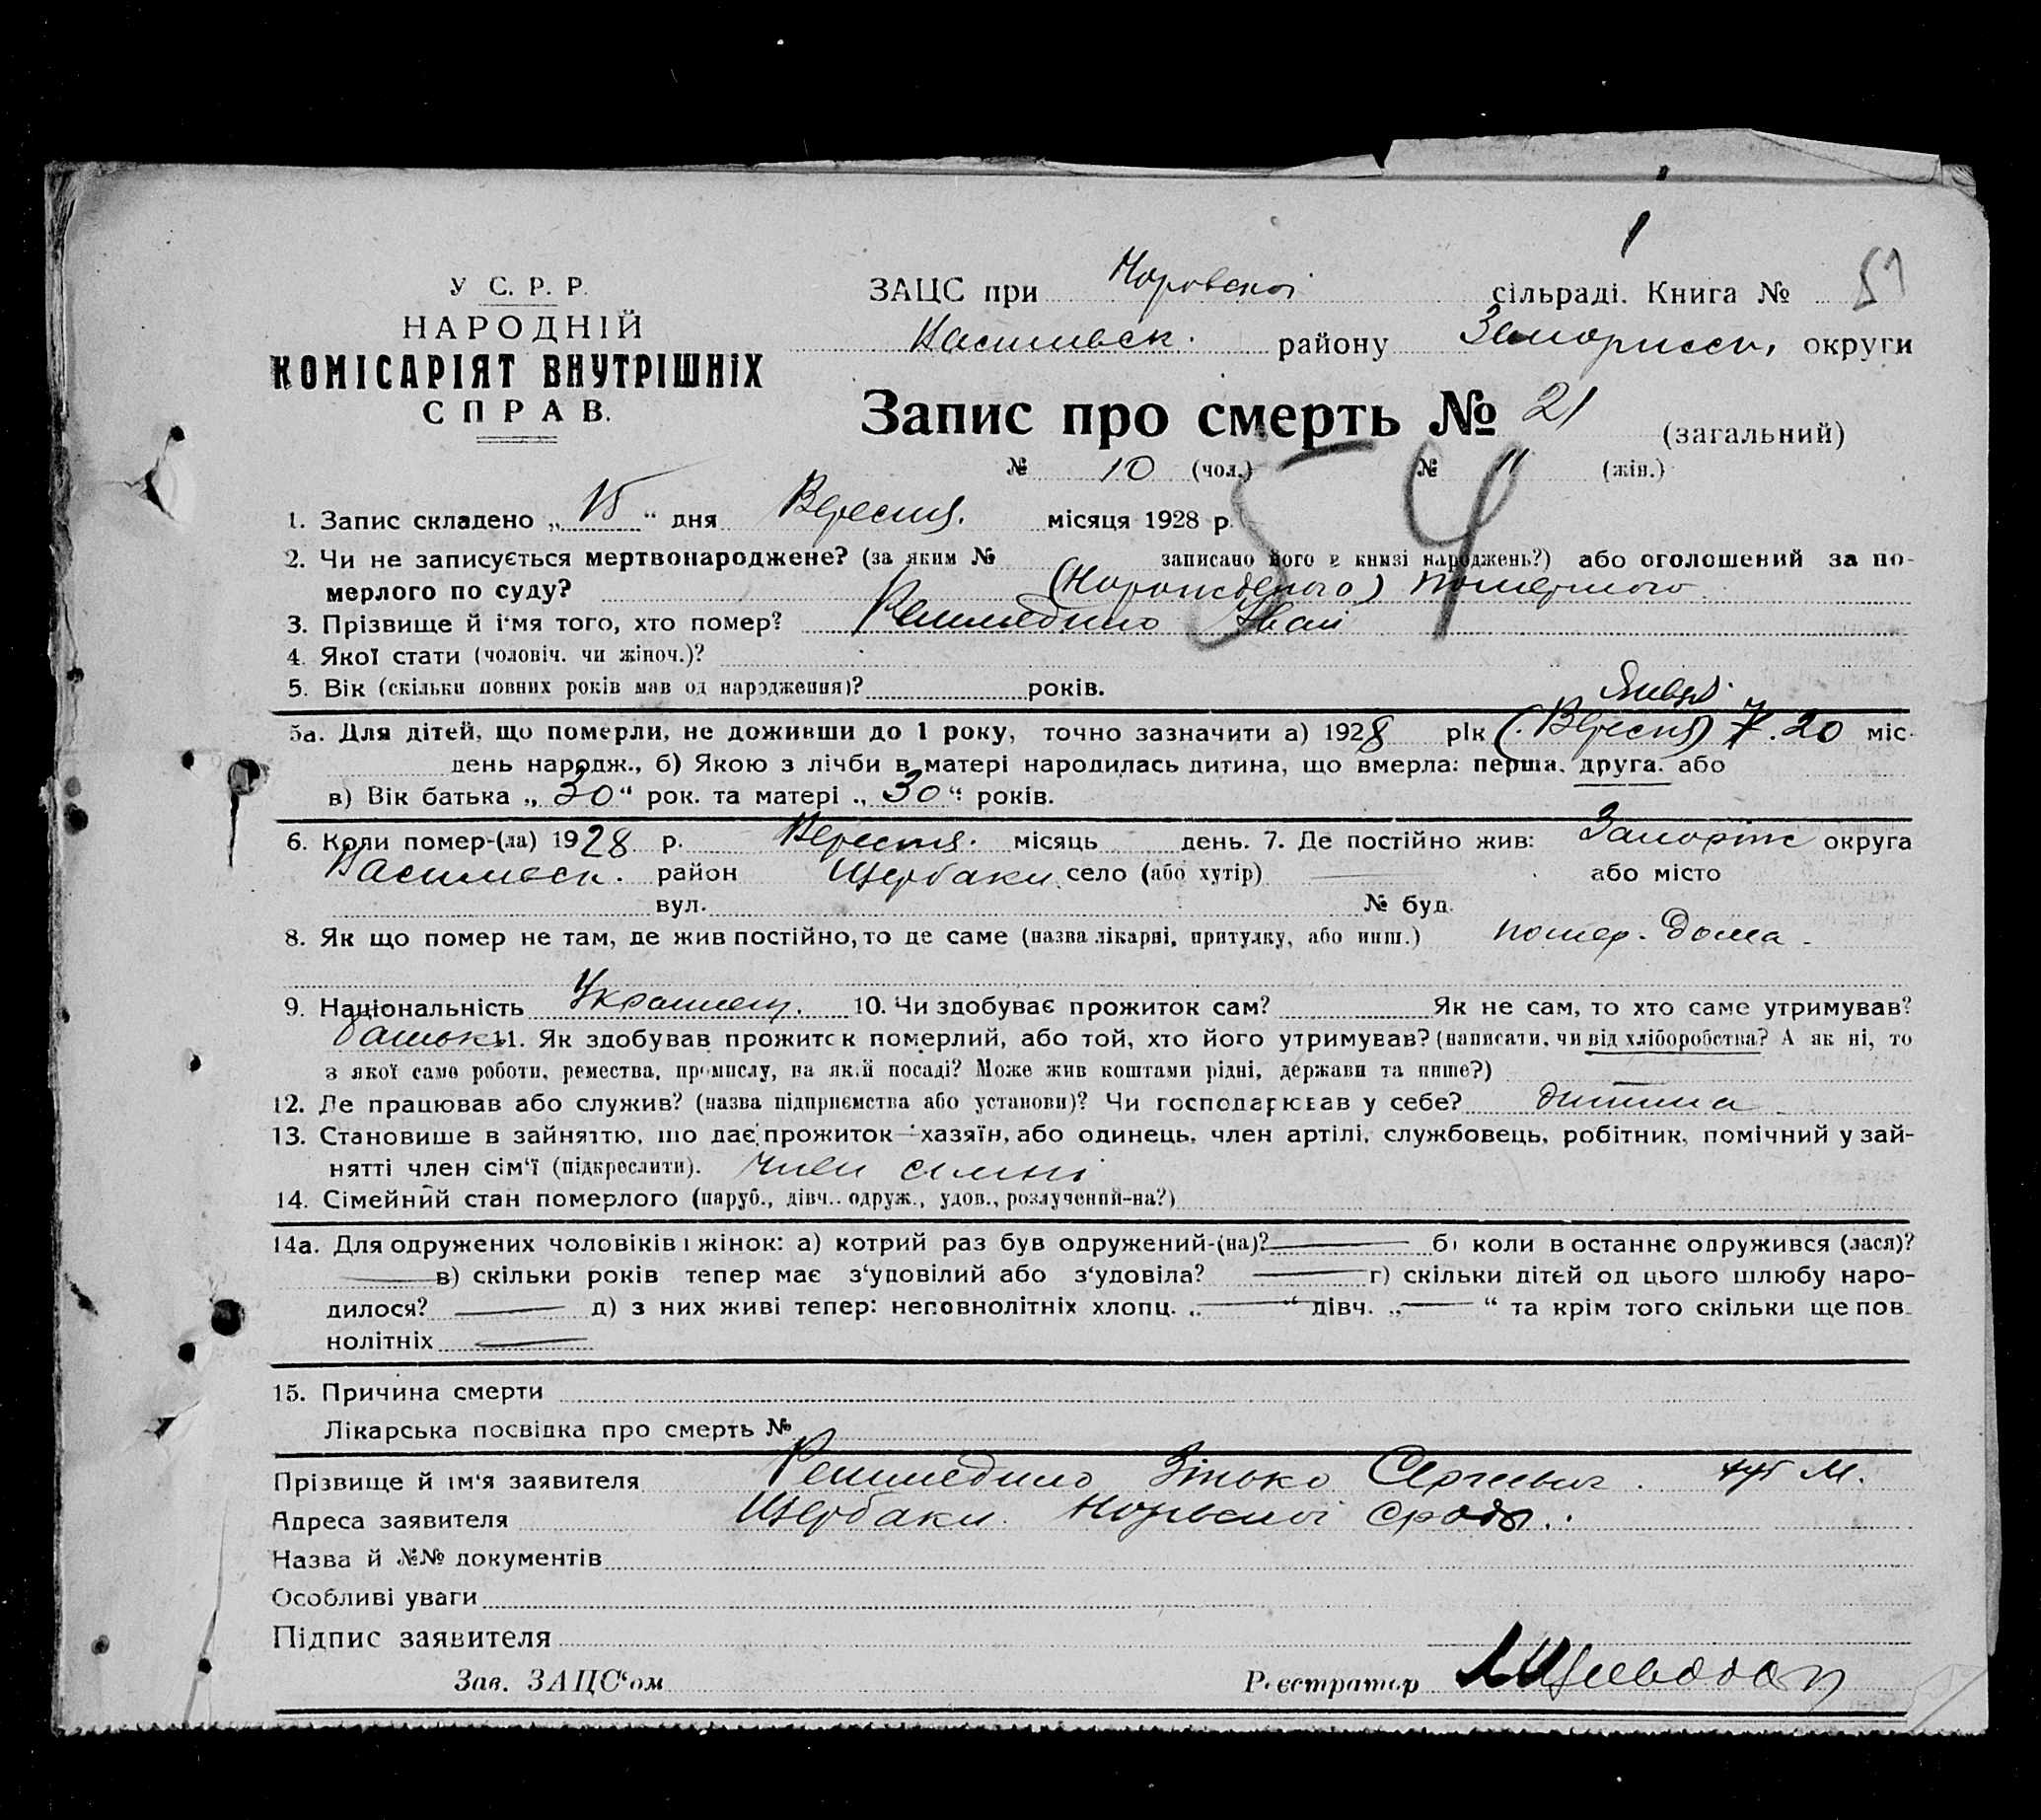 1
У С. Р. Р.
НАРОДНІЙ
КОМІСАРІЯТ ВНУТРІШНІХ
СПРАВ.
ЗАЦС при сільраді. Книга № 51
Василівськ. району округи
Запис про смерть № 21 (загальний)
№ 10 (чол.) № " (жін.)
54
1. Запис складено „ 15 " дня Вересня. місяця 1928 р.
2. Чи не записується мертвонароджене? (за яким № записано його в книзі народжень?) або оголошений за по-
мерлого по суду? померлого
3. Прізвище й ім'я того, хто помер? Іван
4. Якої стати (чоловіч. чи жіноч.)?
5. Вік (скільки повних років мав од народження)? років.
5а. Для дітей, що померли, не доживши до 1 року, точно зазначити а) 1928 рік (Вересня) 20 міс.
день народж., б) Якою з лічби в матері народилась дитина, що вмерла: перша, друга. або
в) Вік батька „ 30 " рок. та матері „ 30 " років.
6. Коли помер-(ла) 1928 р. Вересня. місяць день. 7. Де постійно жив: Запоріж округа
Василівськ. район Щербаки село (або хутір) або місто
вул. № буд.
8. Як що помер не там, де жив постійно, то де саме (назва лікарні, притулку, або инш.) помер. дома.
9. Національність 10. Чи здобуває прожиток сам? Як не сам, то хто саме утримував?
батьки 11. Як здобував прожиток померлий, або той, хто його утримував? (написати, чи від хліборобства? А як ні, то
з якої саме роботи, ремества, промислу, на якій посаді? Може жив коштами рідні, держави та инше?)
12. Де працював або служив? (назва підприємства або установи)? Чи господарював у себе? дитина
13. Становище в зайняттю, що дає прожиток хазяїн, або одинець, член артілі, службовець, робітник, помічний у зай-
нятті член сім'ї (підкреслити). член сімні
14. Сімейний стан померлого (паруб., дівч.. одруж., удов., розлучений-на?)
14а. Для одружених чоловіків і жінок: а) котрий раз був одружений-(на)? б) коли в останнє одружився (лася)?
в) скільки років тепер має з'удовілий або з'удовіла? г) скільки дітей од цього шлюбу наро-
дилося? д) з них живі тепер: неповнолітніх хлопц. „ " дівч. „ " та крім того скільки ще пов-
нолітніх
15. Причина смерти
Лікарська посвідка про смерть №
Прізвище й ім'я заявителя Зінько
Адреса заявителя Щербаки
Назва й №№ документів
Особливі уваги
Підпис заявителя
Зав. ЗАЦС'ом Реєстратор